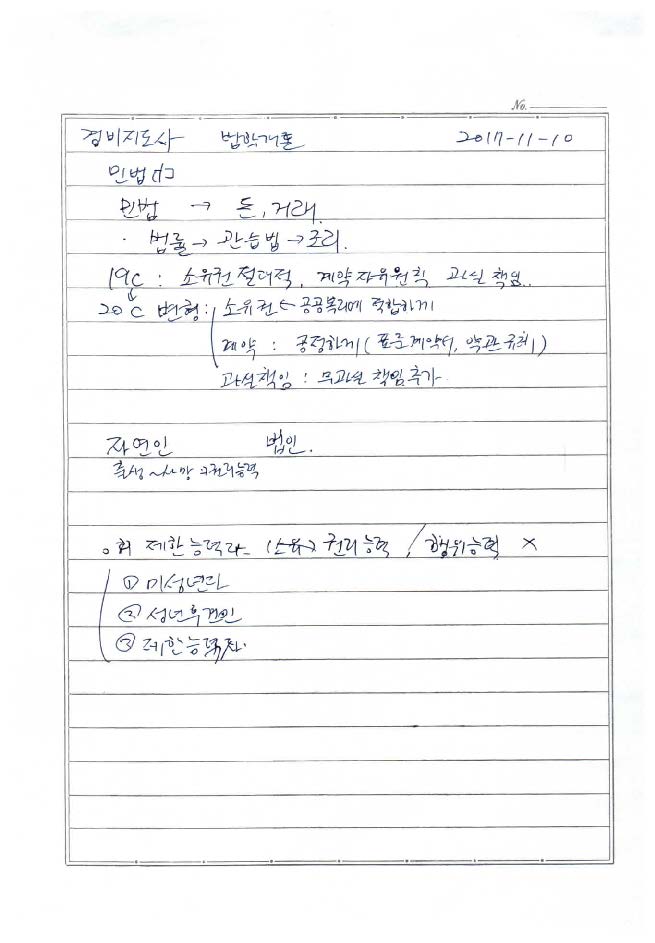 No.
경비지도사 법학개론 2017-11-10
민법
민법 → 돈, 거래.
· 법률 → 관습법 → 조리.
19C : 소유권 절대적, 계약자유원칙 과실 책임.
20C 변형 : 소유권 ← 공공복리에 적합하게
계약 : 공정하게 (표준계약서, 약관 규제)
과실책임 : 무과실 책임 추가
자연인 법인.
출생~사망 권리능력
제한능력자 (소유) 권리능력 / 행위능력 ×
① 미성년자
② 성년후견인
③ 제한능력자.